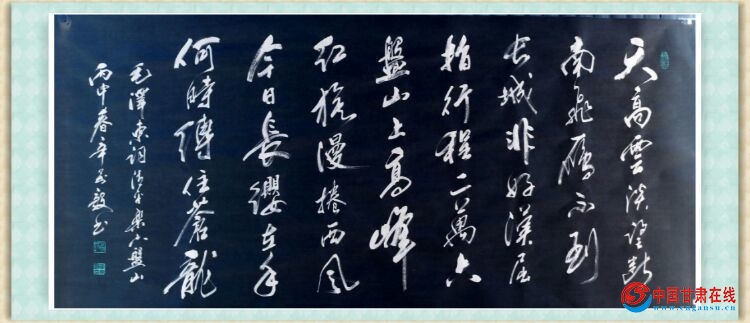 天高雲淡望斷
南飛雁不到
长城非好漢屈
指行程二萬六
盤山上高峰
红旗漫捲西风
今日長纓在手
何時縛住蒼龍
毛澤東詞清平樂六盤山
丙申春辛毅书
中国甘肃在线
www.cngansu.cn